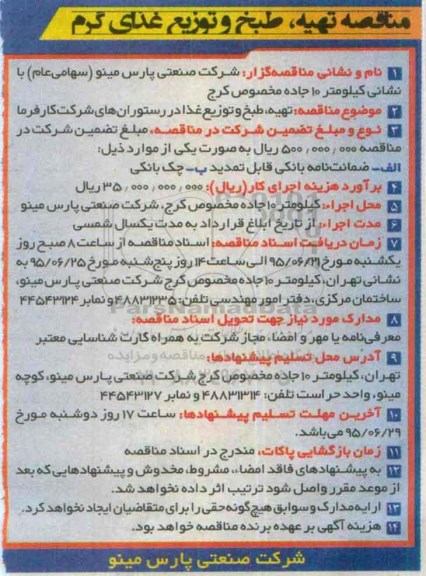 مناقصه تهیه، طبخ و توزیع غذای گرم
۱ نام و نشانی مناقصه‌گزار: شرکت صنعتی پارس مینو (سهامی‌عام) با
نشانی کیلومتر ۱۰ جاده مخصوص کرج
۲ موضوع مناقصه: تهیه، طبخ و توزیع غذا در رستوران‌های شرکت کارفرما
۳ نوع و مبلغ تضمین شرکت در مناقصه، مبلغ تضمین شرکت در
مناقصه ۵۰۰٫۰۰۰٫۰۰۰ ریال به صورت یکی از موارد ذیل:
الف- ضمانت‌نامه بانکی قابل تمدید ب- چک بانکی
۴ برآورد هزینه اجرای کار(ریال): ۳۵٫۰۰۰٫۰۰۰٫۰۰۰ ریال
۵ محل اجراء: کیلومتر ۱۰ جاده مخصوص کرج، شرکت صنعتی پارس مینو
۶ مدت اجراء: از تاریخ ابلاغ قرارداد به مدت یکسال شمسی
۷ زمان دریافت اسناد مناقصه: اسناد مناقصه از ساعت ۸ صبح روز
یکشنبه مورخ ۹۵/۰۶/۲۱ الی ساعت ۱۴ روز پنج‌شنبه مورخ ۹۵/۰۶/۲۵ به
نشانی تهران، کیلومتر ۱۰ جاده مخصوص کرج شرکت صنعتی پارس مینو،
ساختمان مرکزی، دفتر امور مهندسی تلفن: ۴۸۸۳۱۲۳۵ و نمابر ۴۴۵۴۳۱۲۴
۸ مدارک مورد نیاز جهت تحویل اسناد مناقصه:
معرفی‌نامه با مهر و امضاء مجاز شرکت به همراه کارت شناسایی معتبر
۹ آدرس محل تسلیم پیشنهادها:
تهران، کیلومتر ۱۰ جاده مخصوص کرج شرکت صنعتی پارس مینو، کوچه
مینو، واحد حراست تلفن: ۴۸۸۳۱۳۱۴ و نمابر ۴۴۵۴۳۱۲۷
۱۰ آخرین مهلت تسلیم پیشنهادها: ساعت ۱۷ روز دوشنبه مورخ
۹۵/۰۶/۲۹ می‌باشد.
۱۱ زمان بازگشایی پاکات، مندرج در اسناد مناقصه
۱۲ به پیشنهادهای فاقد امضاء، مشروط، مخدوش و پیشنهادهایی که بعد
از موعد مقرر واصل شود ترتیب اثر داده نخواهد شد.
۱۳ ارایه مدارک و سوابق هیچ‌گونه حقی را برای متقاضیان ایجاد نخواهد کرد.
۱۴ هزینه آگهی بر عهده برنده مناقصه خواهد بود.
شرکت صنعتی پارس مینو
ParsNamadData